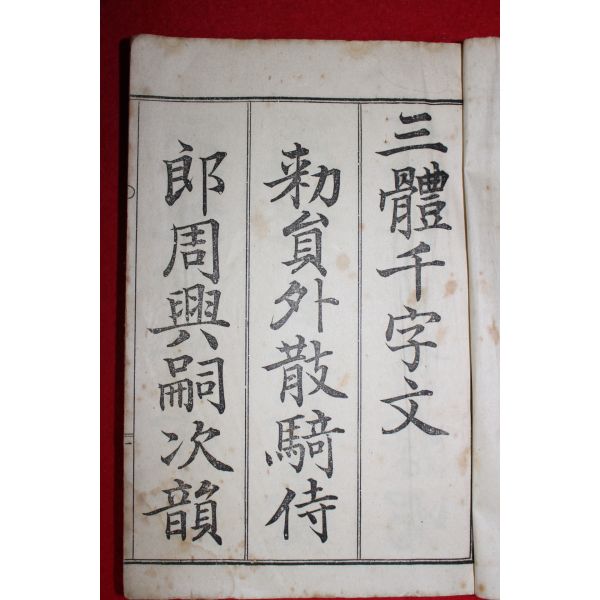 三體千字文
勑員外散騎侍
郎周興嗣次韻
一